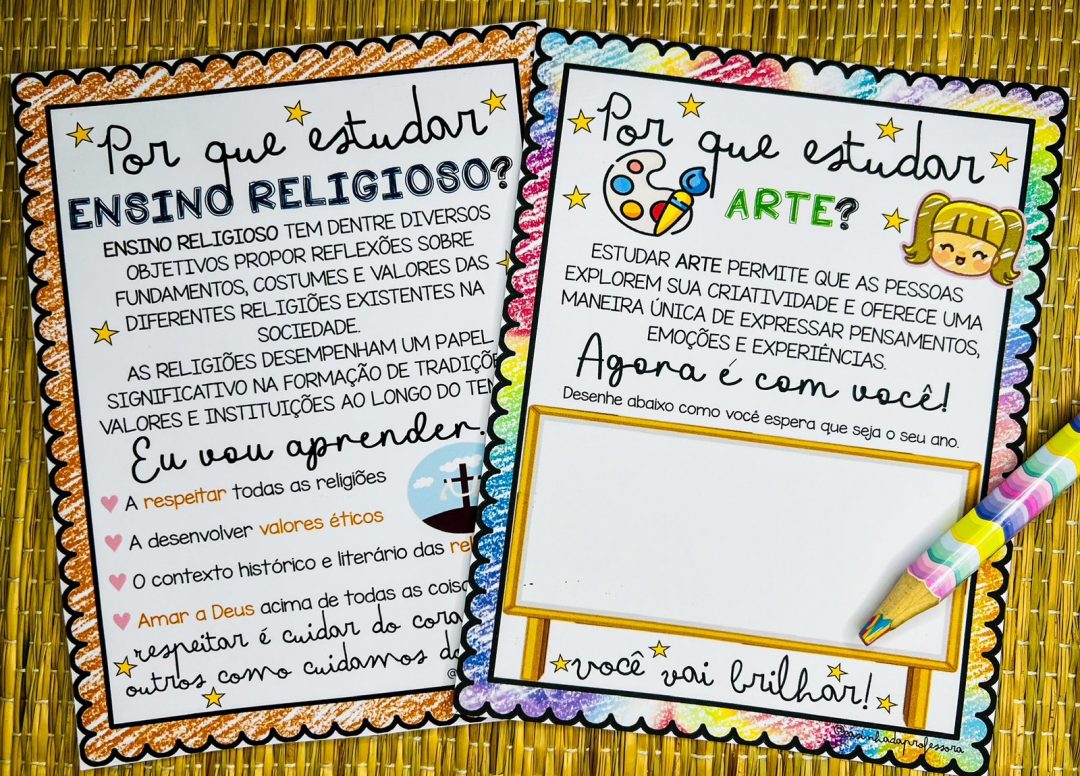 Por que estudar
ENSINO RELIGIOSO?
ENSINO RELIGIOSO TEM DENTRE DIVERSOS
OBJETIVOS PROPOR REFLEXÕES SOBRE
FUNDAMENTOS, COSTUMES E VALORES DAS
DIFERENTES RELIGIÕES EXISTENTES NA
SOCIEDADE.
AS RELIGIÕES DESEMPENHAM UM PAPEL
SIGNIFICATIVO NA FORMAÇÃO DE
VALORES E INSTITUIÇÕES AO LONGO DO
Eu vou aprender.
A respeitar todas as religiões
A desenvolver valores éticos
O contexto histórico e literário das
Amar a Deus acima de todas as
respeitar é cuidar do
outros como cuidamos
Por que estudar
ARTE?
ESTUDAR ARTE PERMITE QUE AS PESSOAS
EXPLOREM SUA CRIATIVIDADE E OFERECE UMA
MANEIRA ÚNICA DE EXPRESSAR PENSAMENTOS,
EMOÇÕES E EXPERIÊNCIAS.
Agora é com você!
Desenhe abaixo como você espera que seja o seu ano.
você vai brilhar!